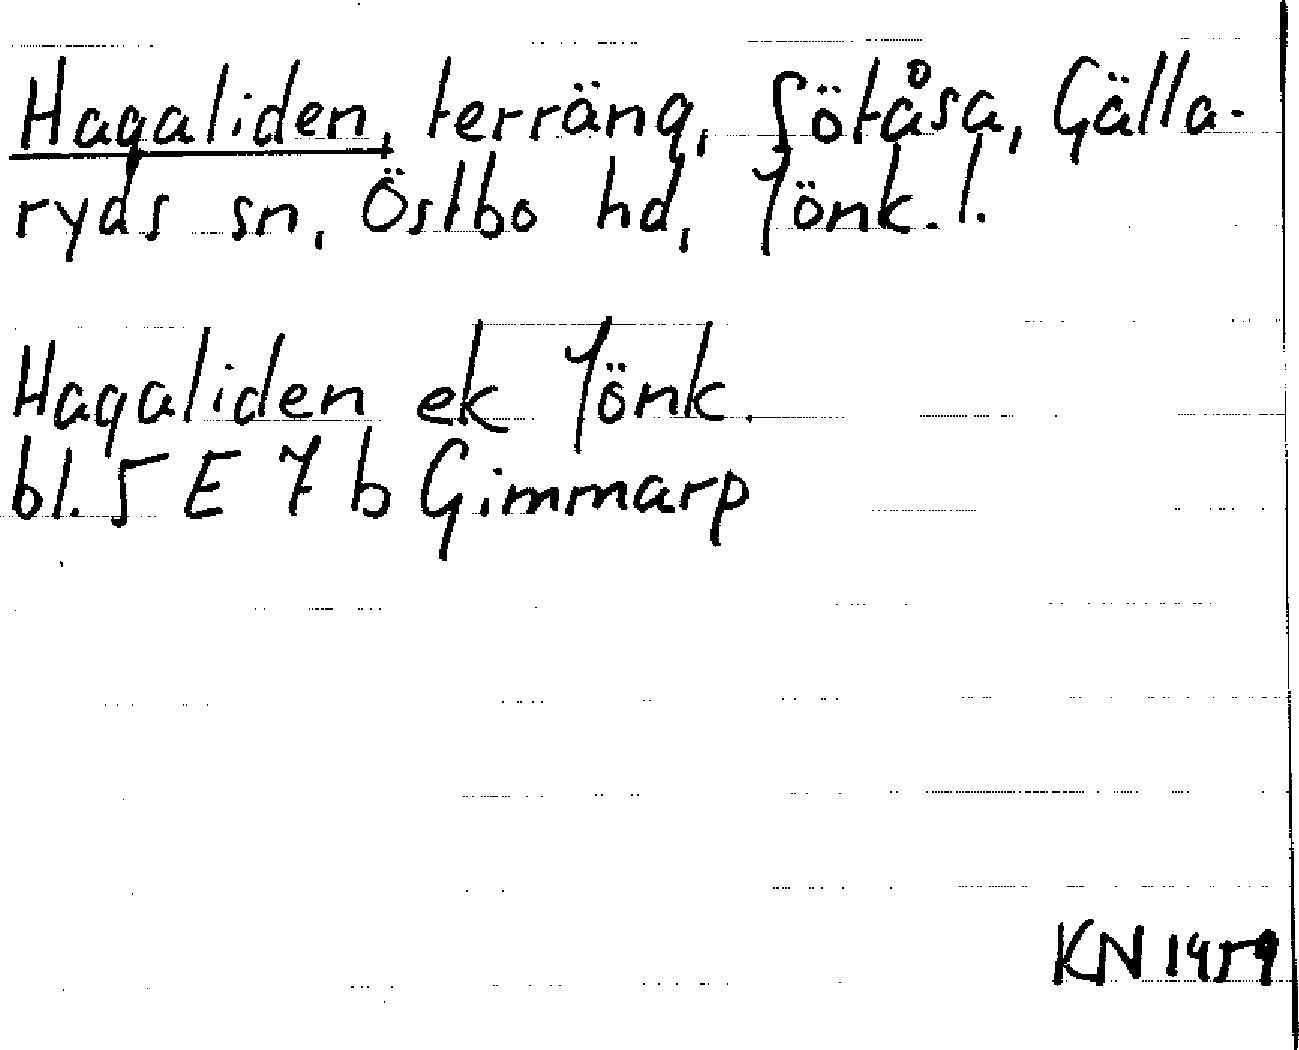 Hagaliden, terräng, Götåsa, Gälla-
ryds sn, Östbo hd, Jönk. l.
Hagaliden ek Jönk.
bl. 5 E 7 b Gimmarp
KN 1459